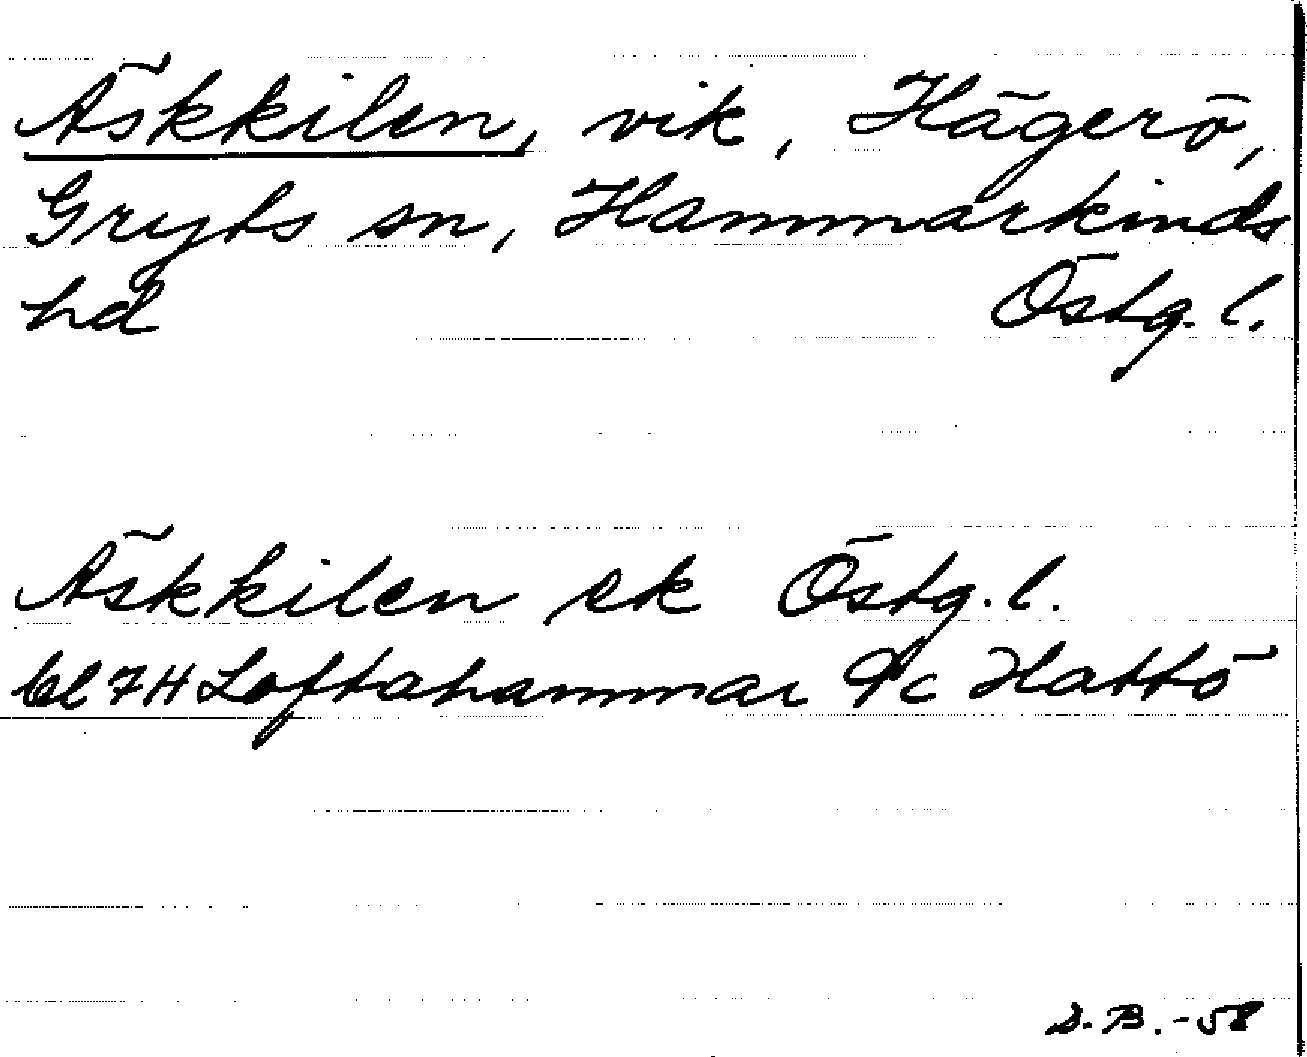 Äskkilen, vik, Hägerö,
Gryts sn, Hammarkinds
hd Östg. l.
Äskkilen ek Östg. l.
bl 7H Loftahammar 9c Hattö
D. B. -58